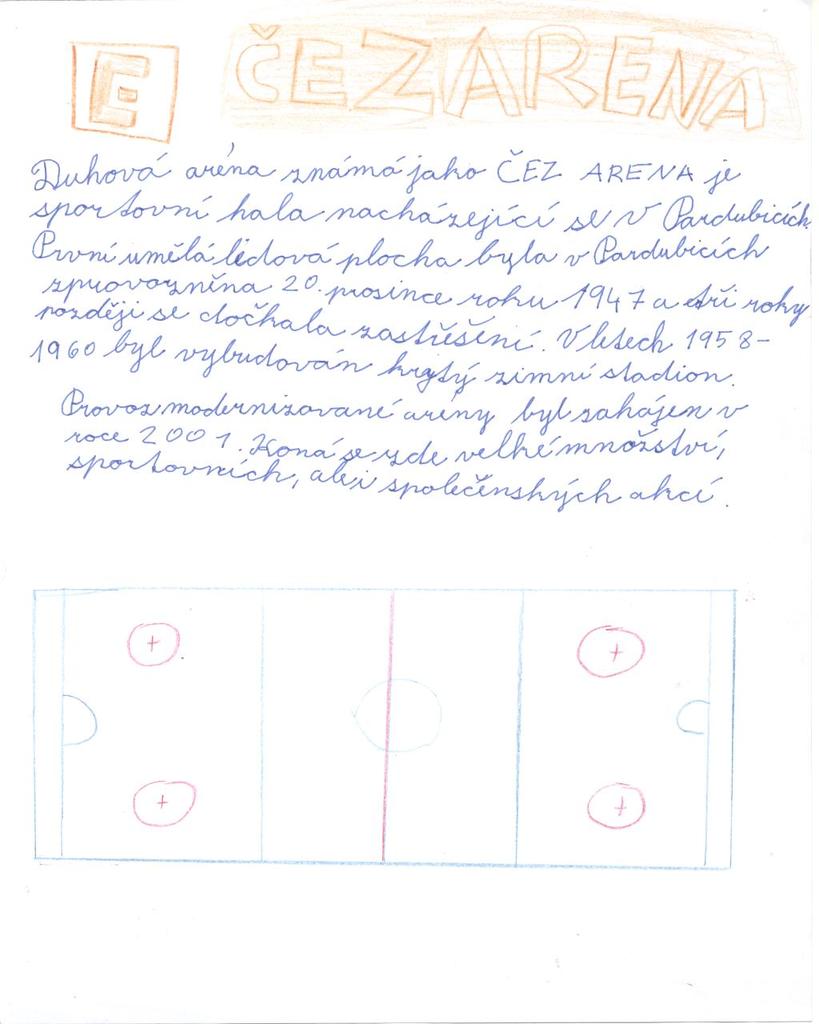 E ČEZ ARENA
Duhová aréna známá jako ČEZ ARENA je
sportovní hala nacházející se v Pardubicích.
První umělá ledová plocha byla v Pardubicích
zprovozněna 20. prosince roku 1947 a tři roky
později se dočkala zastřešení. V letech 1958-
1960 byl vybudován krytý zimní stadion.
Provoz modernizované arény byl zahájen v
roce 2001. Koná se zde velké množství,
sportovních, ale i společenských akcí.